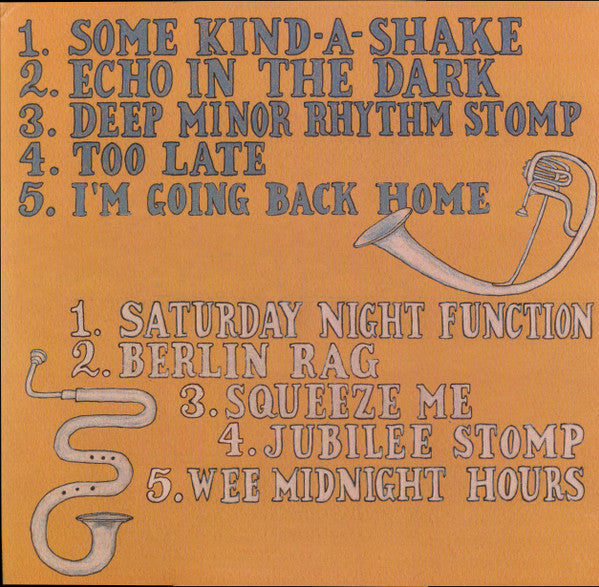 1. SOME KIND-A-SHAKE
2. ECHO IN THE DARK
3. DEEP MINOR RHYTHM STOMP
4. TOO LATE
5. I'M GOING BACK HOME
1. SATURDAY NIGHT FUNCTION
2. BERLIN RAG
3. SQUEEZE ME
4. JUBILEE STOMP
5. WEE MIDNIGHT HOURS